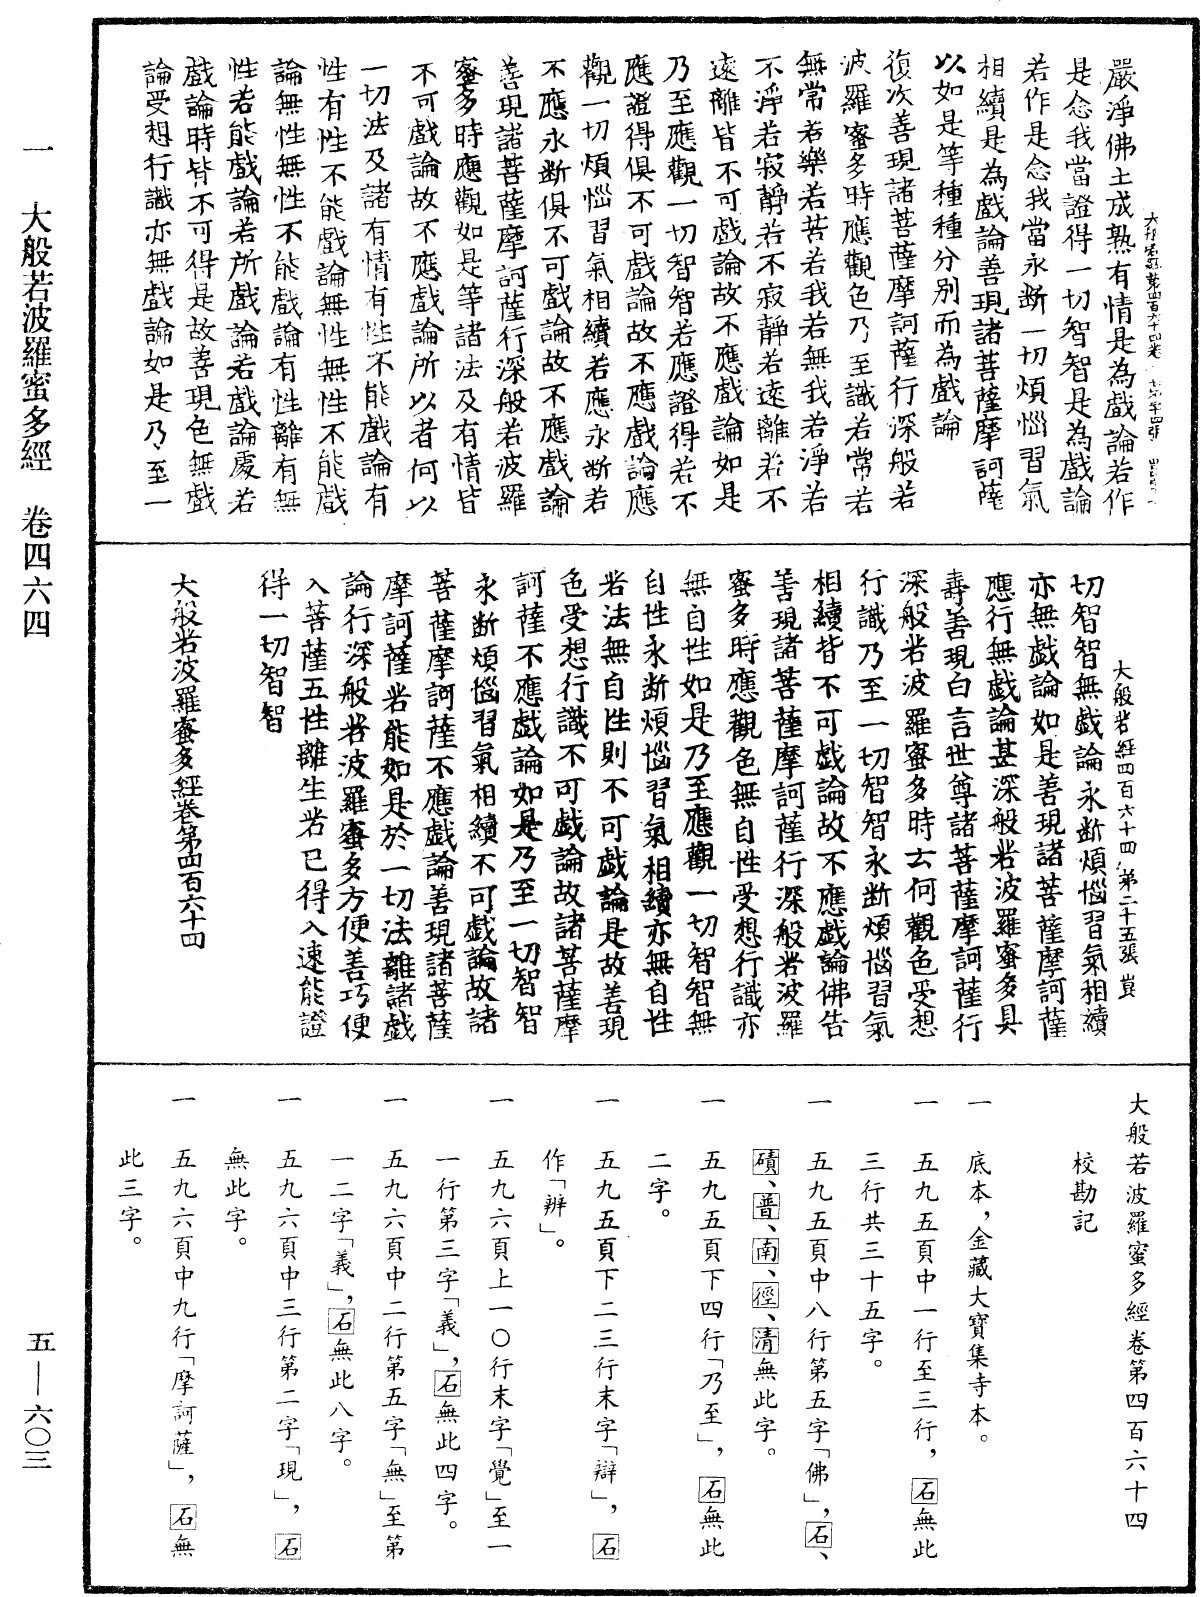 一 大般若波羅蜜多經 卷四六四
五—六〇三
嚴淨佛土成熟有情是為戲論若作
是念我當證得一切智智是為戲論
若作是念我當永斷一切煩惱習氣
相續是為戲論善現諸菩薩摩訶薩
以如是等種種分別而為戲論
復次善現諸菩薩摩訶薩行深般若
波羅蜜多時應觀色乃至識若常若
無常若樂若苦若我若無我若淨若
不淨若寂靜若不寂靜若遠離若不
遠離皆不可戲論故不應戲論如是
乃至應觀一切智智若應證得若不
應證得俱不可戲論故不應戲論應
觀一切煩惱習氣相續若應永斷若
不應永斷俱不可戲論故不應戲論
善現諸菩薩摩訶薩行深般若波羅
蜜多時應觀如是等諸法及有情皆
不可戲論故不應戲論所以者何以
一切法及諸有情有性不能戲論有
性有性不能戲論無性無性不能戲
論無性無性不能戲論有性離有無
性若能戲論若所戲論若戲論處若
戲論時皆不可得是故善現色無戲
論受想行識亦無戲論如是乃至一
大般若經四百六十四 第二十五張 崑
切智智無戲論永斷煩惱習氣相續
亦無戲論如是善現諸菩薩摩訶薩
應行無戲論甚深般若波羅蜜多具
壽善現白言世尊諸菩薩摩訶薩行
深般若波羅蜜多時云何觀色受想
行識乃至一切智智永斷煩惱習氣
相續皆不可戲論故不應戲論佛告
善現諸菩薩摩訶薩行深般若波羅
蜜多時應觀色無自性受想行識亦
無自性如是乃至應觀一切智智無
自性永斷煩惱習氣相續亦無自性
若法無自性則不可戲論是故善現
色受想行識不可戲論故諸菩薩摩
訶薩不應戲論如是乃至一切智智
永斷煩惱習氣相續不可戲論故諸
菩薩摩訶薩不應戲論善現諸菩薩
摩訶薩若能如是於一切法離諸戲
論行深般若波羅蜜多方便善巧便
入菩薩五性離生若已得入速能證
得一切智智
大般若波羅蜜多經卷第四百六十四
大般若波羅蜜多經卷第四百六十四
校勘記
一 底本,金藏大寶集寺本。
一 五九五頁中一行至三行,石無此
三行共三十五字。
一 五九五頁中八行第五字「佛」,石、
磧、普、南、徑、清無此字。
一 五九五頁下四行「乃至」,石無此
二字。
一 五九五頁下二三行末字「辯」,石
作「辨」。
一 五九六頁上一〇行末字「覺」至一
一行第三字「義」,石無此四字。
一 五九六頁中二行第五字「無」至第
一二字「義」,石無此八字。
一 五九六頁中三行第二字「現」,石
無此字。
一 五九六頁中九行「摩訶薩」,石無
此三字。